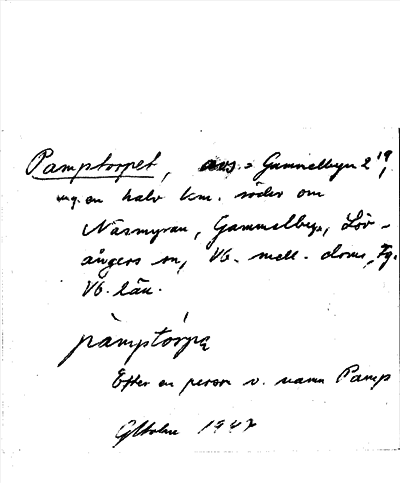 Pamptorpet, avs. = Gammelbyn 2 19,
ung. en halv km. söder om
Näsmyran, Gammelbyn, Löv-
ångers sn, Vb. mell. doms. fg.
Vb. län.
pàmptórpə
Efter en person v. namn Pamp
1947